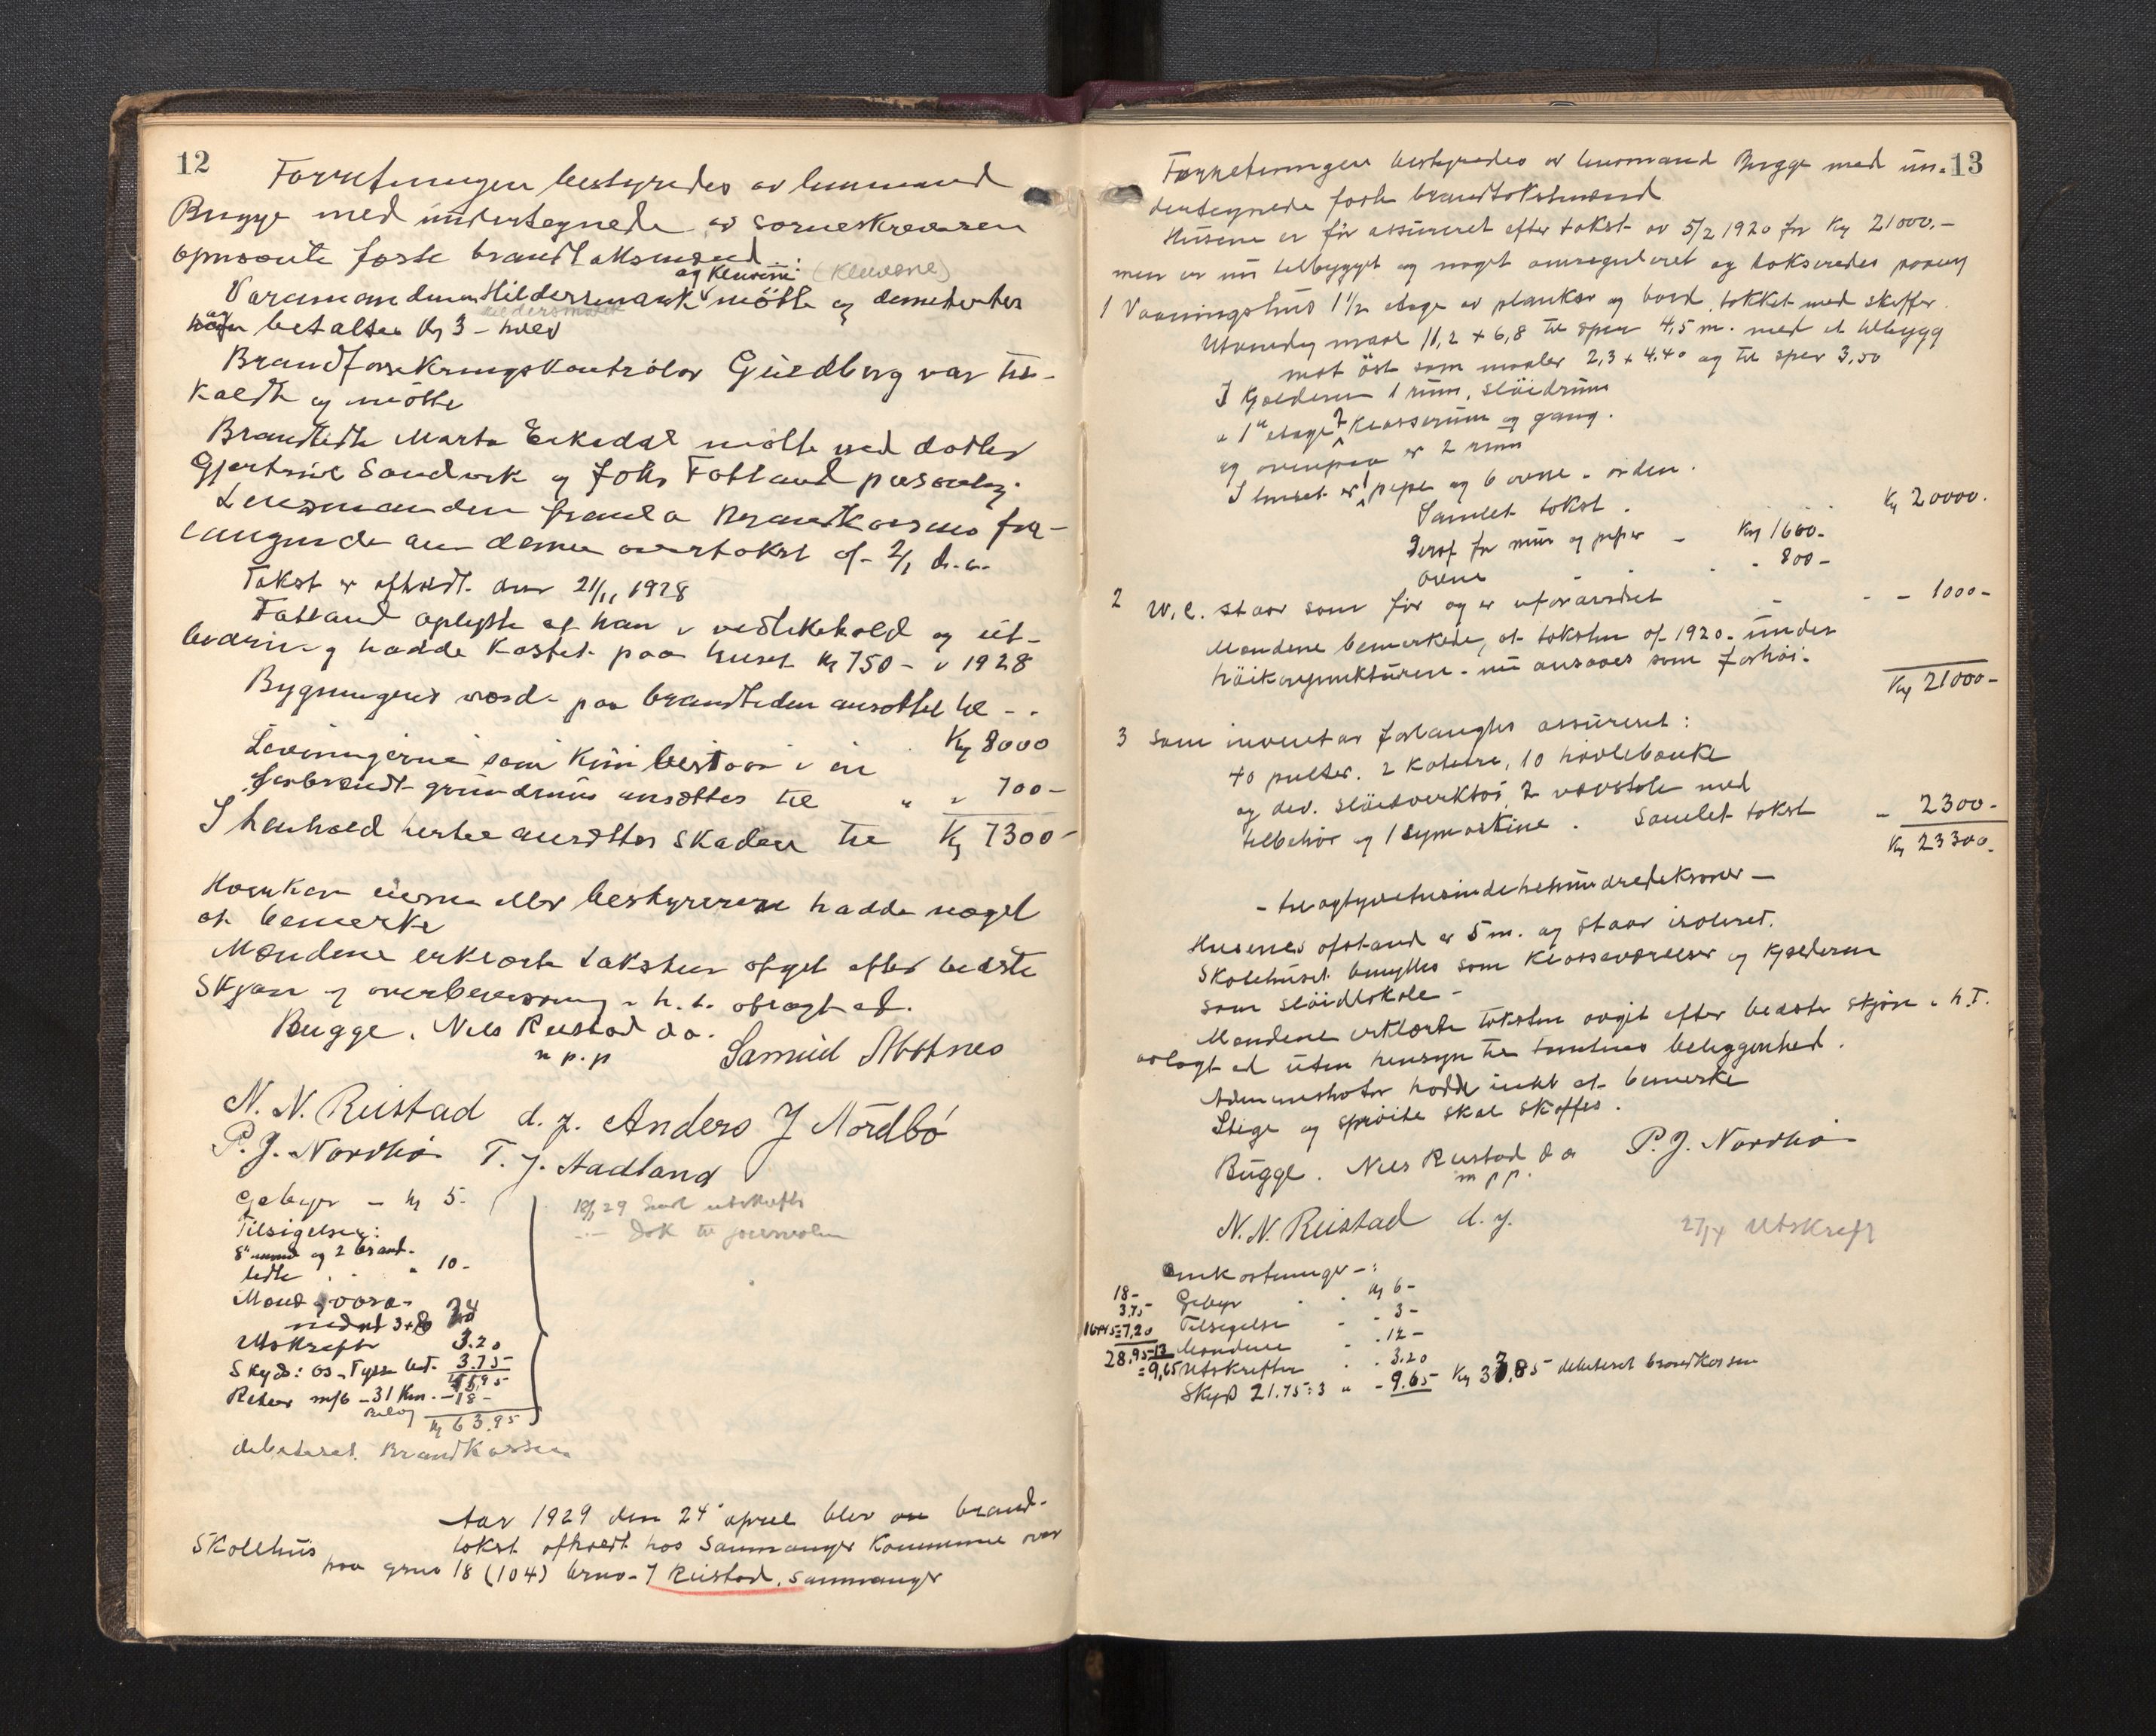 12
Forretningen bestyredes av lensmand
Bugge med undertegnede av sorenskriveren
opnævnte faste brandtakstmænd:
og Kleivene (Kleivene)
Varamændene Hildersmark møtte og
betaltes Kr 3 - hver
Brandforsikringskontrolør Guldberg var til-
kaldt og møtte
Brandlidte Marta Eikedal møtte ved datter
Gjertrud Sandvik og Johs Fotland personlig.
Lensmanden fremla Brandkassens for-
langende om denne overtakst af 2/1 d.a.
Takst er afholdt den 21/11 1928
Fotland oplyste at han i vedlikehold og ut-
bedring hadde kostet paa huset kr 750 - i 1928
Bygningens værd paa brandtiden ansættes til - -
Kr 8000
Levningerne som kun bestaar i en
forbrændt grundmur ansættes til " " 700 -
I henhold hertil ansættes skaden til Kr 7300 -
Hverken eieren eller bestyreren hadde noget
at bemerke
Mændene erklærte taksten afgit efter bedste
skjøn og overbevisning i h. t. aflagt ed.
Bugge. Nils Reistad d.æ. Samuel
m p.p
N. N. Reistad d. y. Anders J Nordbø
P. J. Nordbø T. J. Aadland
Gebyr - kr 5 -
Tilsigelse:
8 mænd og 2 brand-
lidte . - " 10 -
Mænd og vara-
mænd 3+8 24
Utskrift 3.20
Skyds: Os - Tysse bet. 3.75
45.95
Retur m/b - 31 Km. - 18 -
Beløp kr 63.95
debiteret Brandkassen
18/1 29 Send utskrift
- - Dok til journalen
Aar 1929 den 24 april blev en brand-
Skolehus takst afholdt hos Samnanger Kommune over
paa gno 18 (104) bruo - 7 Reistad, Samnanger
13
Forretningen bestyredes av lensmand Bugge med un-
dertegnede faste brandtakstmænd
Husene er før assureret efter takst av 5/2 1920 for Kr 21000.-
men er nu tilbygget og noget omreguleret og takseredes paany
1 Vaaningshus 1 1/2 etage av planker og bord, tækket med skiffer.
Utvendig maal 11,2 + 6,8 til sper 4,5 m. med et tilbygg
mot øst som maaler 2,3 + 4.40 og til sper 3,50
I Kjælderen 1 rum, sløidrum
i 1" etage 2 klasserum og gang.
og ovenpaa er 2 rum
I huset er 1 pipe og 6 ovne i orden.
Samlet takst . Kr 20000.
Deraf for mur og piper - Kr 1600 -
ovne . - 800 -
2 W.C. staar som før og er uforandret - - 1000 -
Mændene bemerkede, at taksten af 1920 - under
høikonjunkturen - nu ansaaes som forhøi.
Kr 21000 -
3 Som inventar forlanges assureret:
40 pulter. 2 katetre, 10 høvlebænke
og div. sløidverktøi, 2 vævstole med
tilbehør og 1 symaskine . Samlet takst - 2300 -
Kr 23300.
- treogtyvetusindetrehundredekroner -
Husenes afstand er 5 m. og staar isoleret.
Skolehuset benyttes som klasseværelser og kjælderen
som sløidlokale -
Mændene erklærte taksten avgit efter bedste skjøn i h.t.
avlagt ed uten hensyn til tomtens beliggenhed.
Administrator hadde intet at bemerke
Stige og sprøite skal skaffes.
Bugge. Nils Reistad d æ P. J. Nordbø
m p p.
N. N. Reistad d. y. 27/4 Utskrift
Omkostninger -:
18 - Gebyr . . kr 6 -
3.75 Tilsigelse - - 3 -
16+45=7,20 Mændene - . 12 -
28.95:3 Utskriften . . 3.20
=9,65 Skyds 21.75:3 " - 9.65 Kr 33.85 debiteret brandkassen